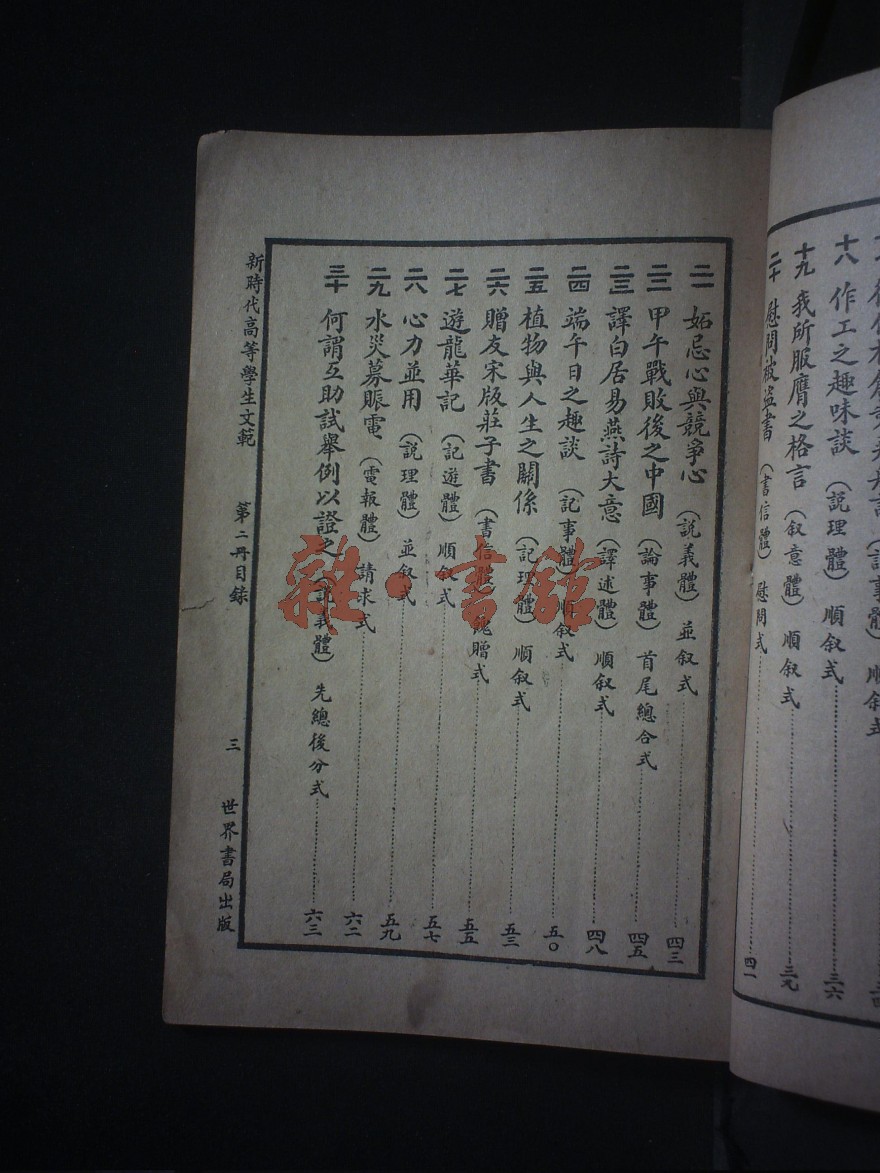 十八 作工之趣味談 (説理體) 順叙式 三六
十九 我所服膺之格言 (叙意體) 順叙式 三九
二十 慰問被盜書 (書信體) 慰問式 四一
二一 妬忌心與競爭心 (説義體) 並叙式 四三
二二 甲午戰敗後之中國 (論事體) 首尾總合式 四五
二三 譯白居易燕詩大意 (譯述體) 順叙式 四八
二四 端午日之趣談 (記事體) 順叙式 五〇
二五 植物與人生之關係 (記理體) 順叙式 五三
二六 贈友宋版莊子書 (書信體) 餽贈式 五五
二七 遊龍華記 (記遊體) 順叙式 五七
二八 心力並用 (説理體) 並叙式 五九
二九 水災募賑電 (電報體) 請求式 六二
三十 何謂互助試舉例以證之 (説義體) 先總後分式 六三
新時代高等學生文範 第二册目録 三 世界書局出版
雜·書館